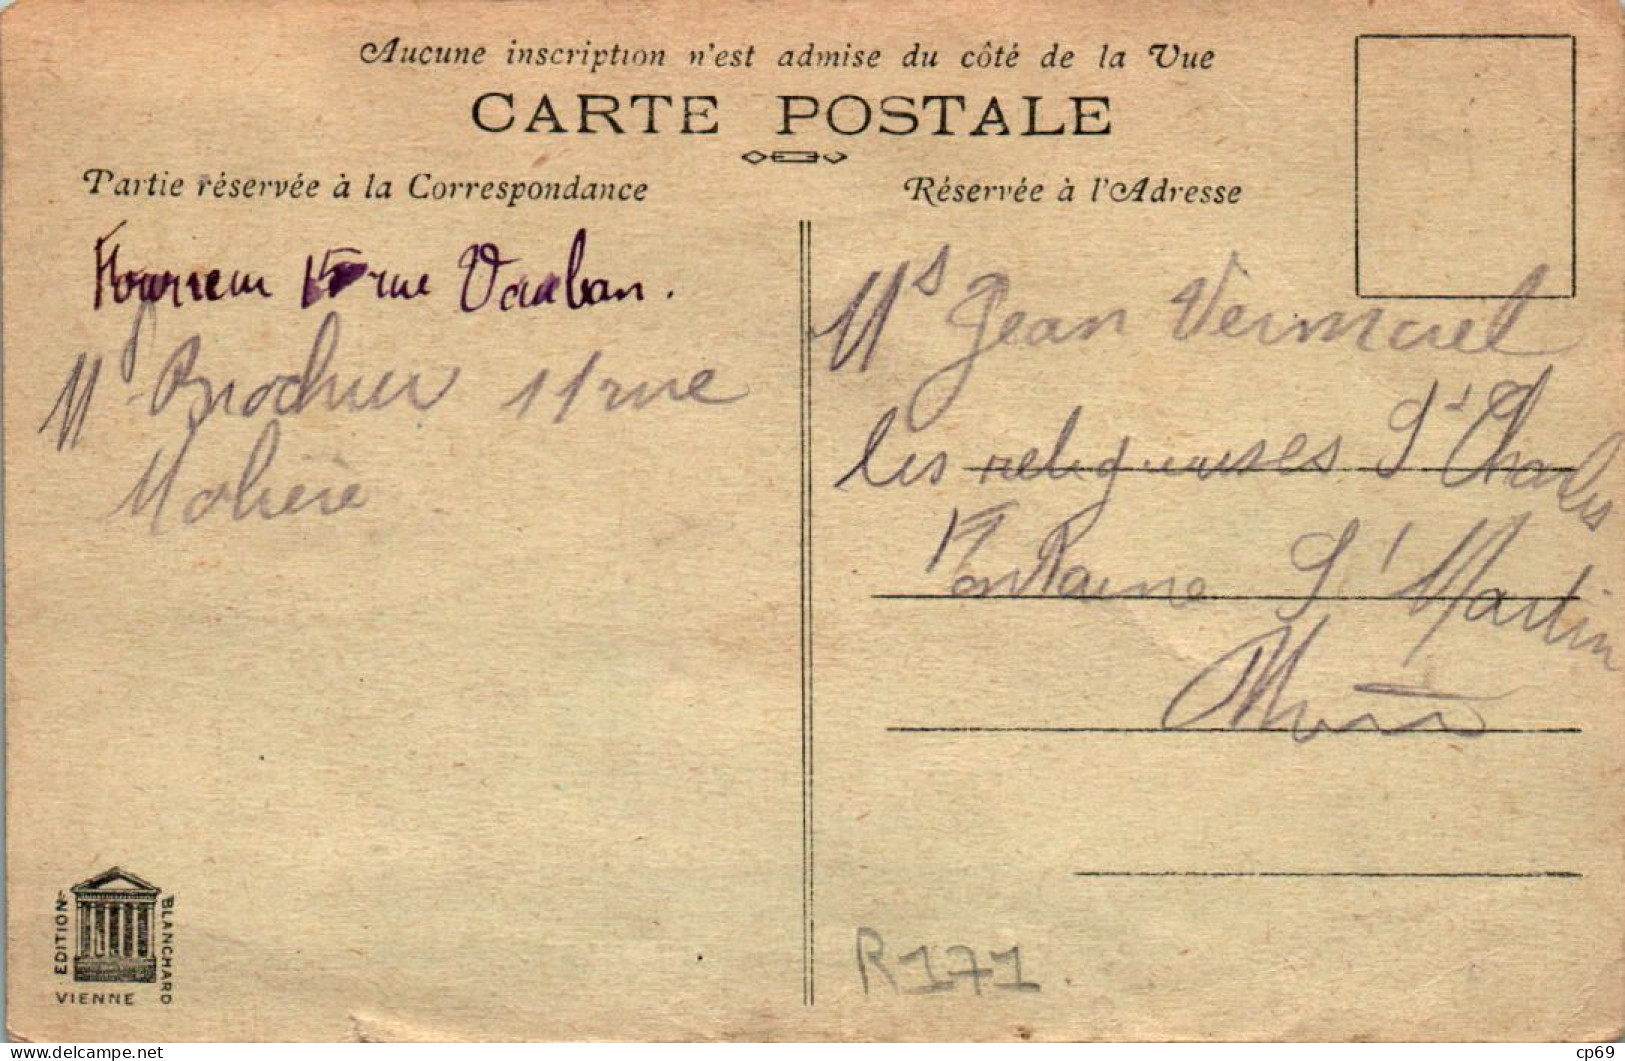 Aucune inscription n'est admise du côté de la Vue
CARTE POSTALE
Partie réservée à la Correspondance
Réservée à l'Adresse
Fourreur 15 rue Vauban.
Mr Brochier 11 rue
Molière
Ms Jean Vermorel
les religieuses St Charles
Fontaine St Martin
Rhône
EDITION
BLANCHARD
VIENNE
R171
delcampe.net
cp69